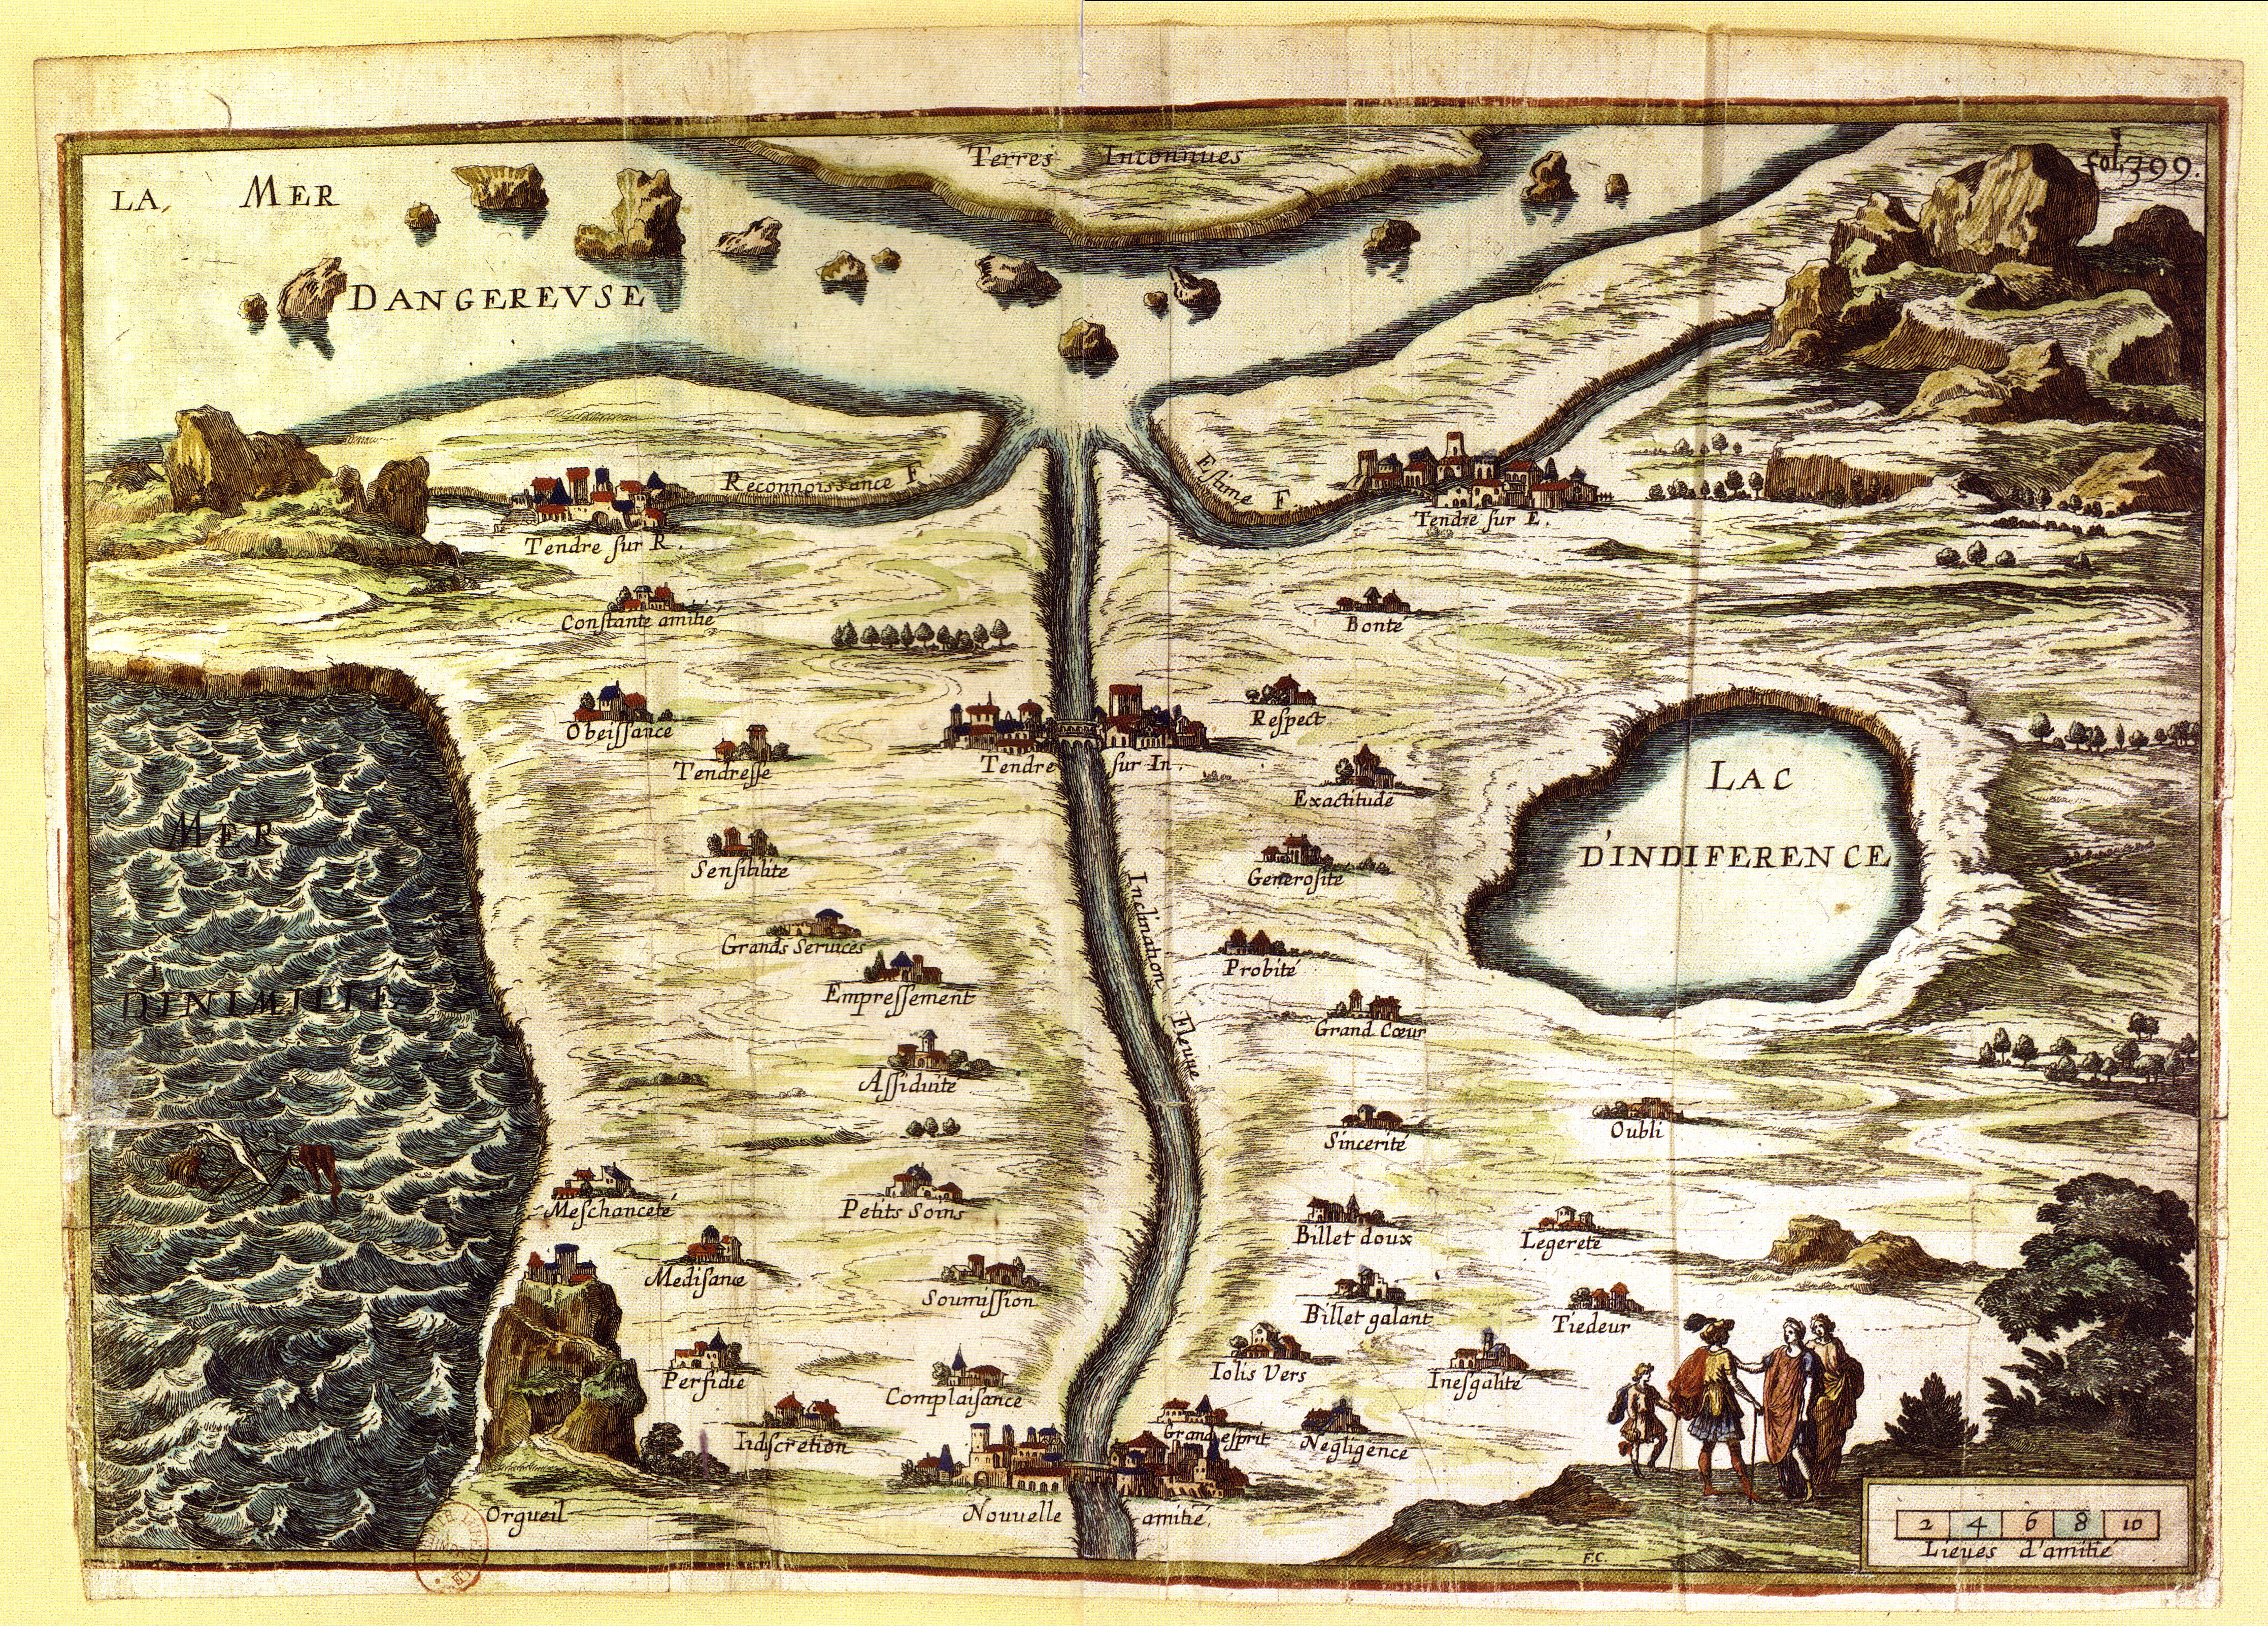 Terres Inconnues
fol. 399.
LA MER
DANGEREVSE
Reconnoissance F
Estime F
Tendre sur R.
Tendre sur E.
Constante amitié
Bonté
Obeissance
Respect
Tendresse
Tendre sur In.
Exactitude
LAC
D'INDIFERENCE
MER
D'INIMITIE
Sensibilité
Generosité
Inclination Fleuue
Grands Seruices
Probité
Empressement
Grand Cœur
Assiduité
Sincerité
Oubli
Meschanceté
Petits Soins
Billet doux
Legereté
Medisance
Soumission
Billet galant
Tiedeur
Perfidie
Complaisance
Iolis Vers
Inesgalité
Indiscretion
Grand esprit
Negligence
Orgueil
Nouuelle amitié.
2 4 6 8 10
Lieues d'amitié
F.C.